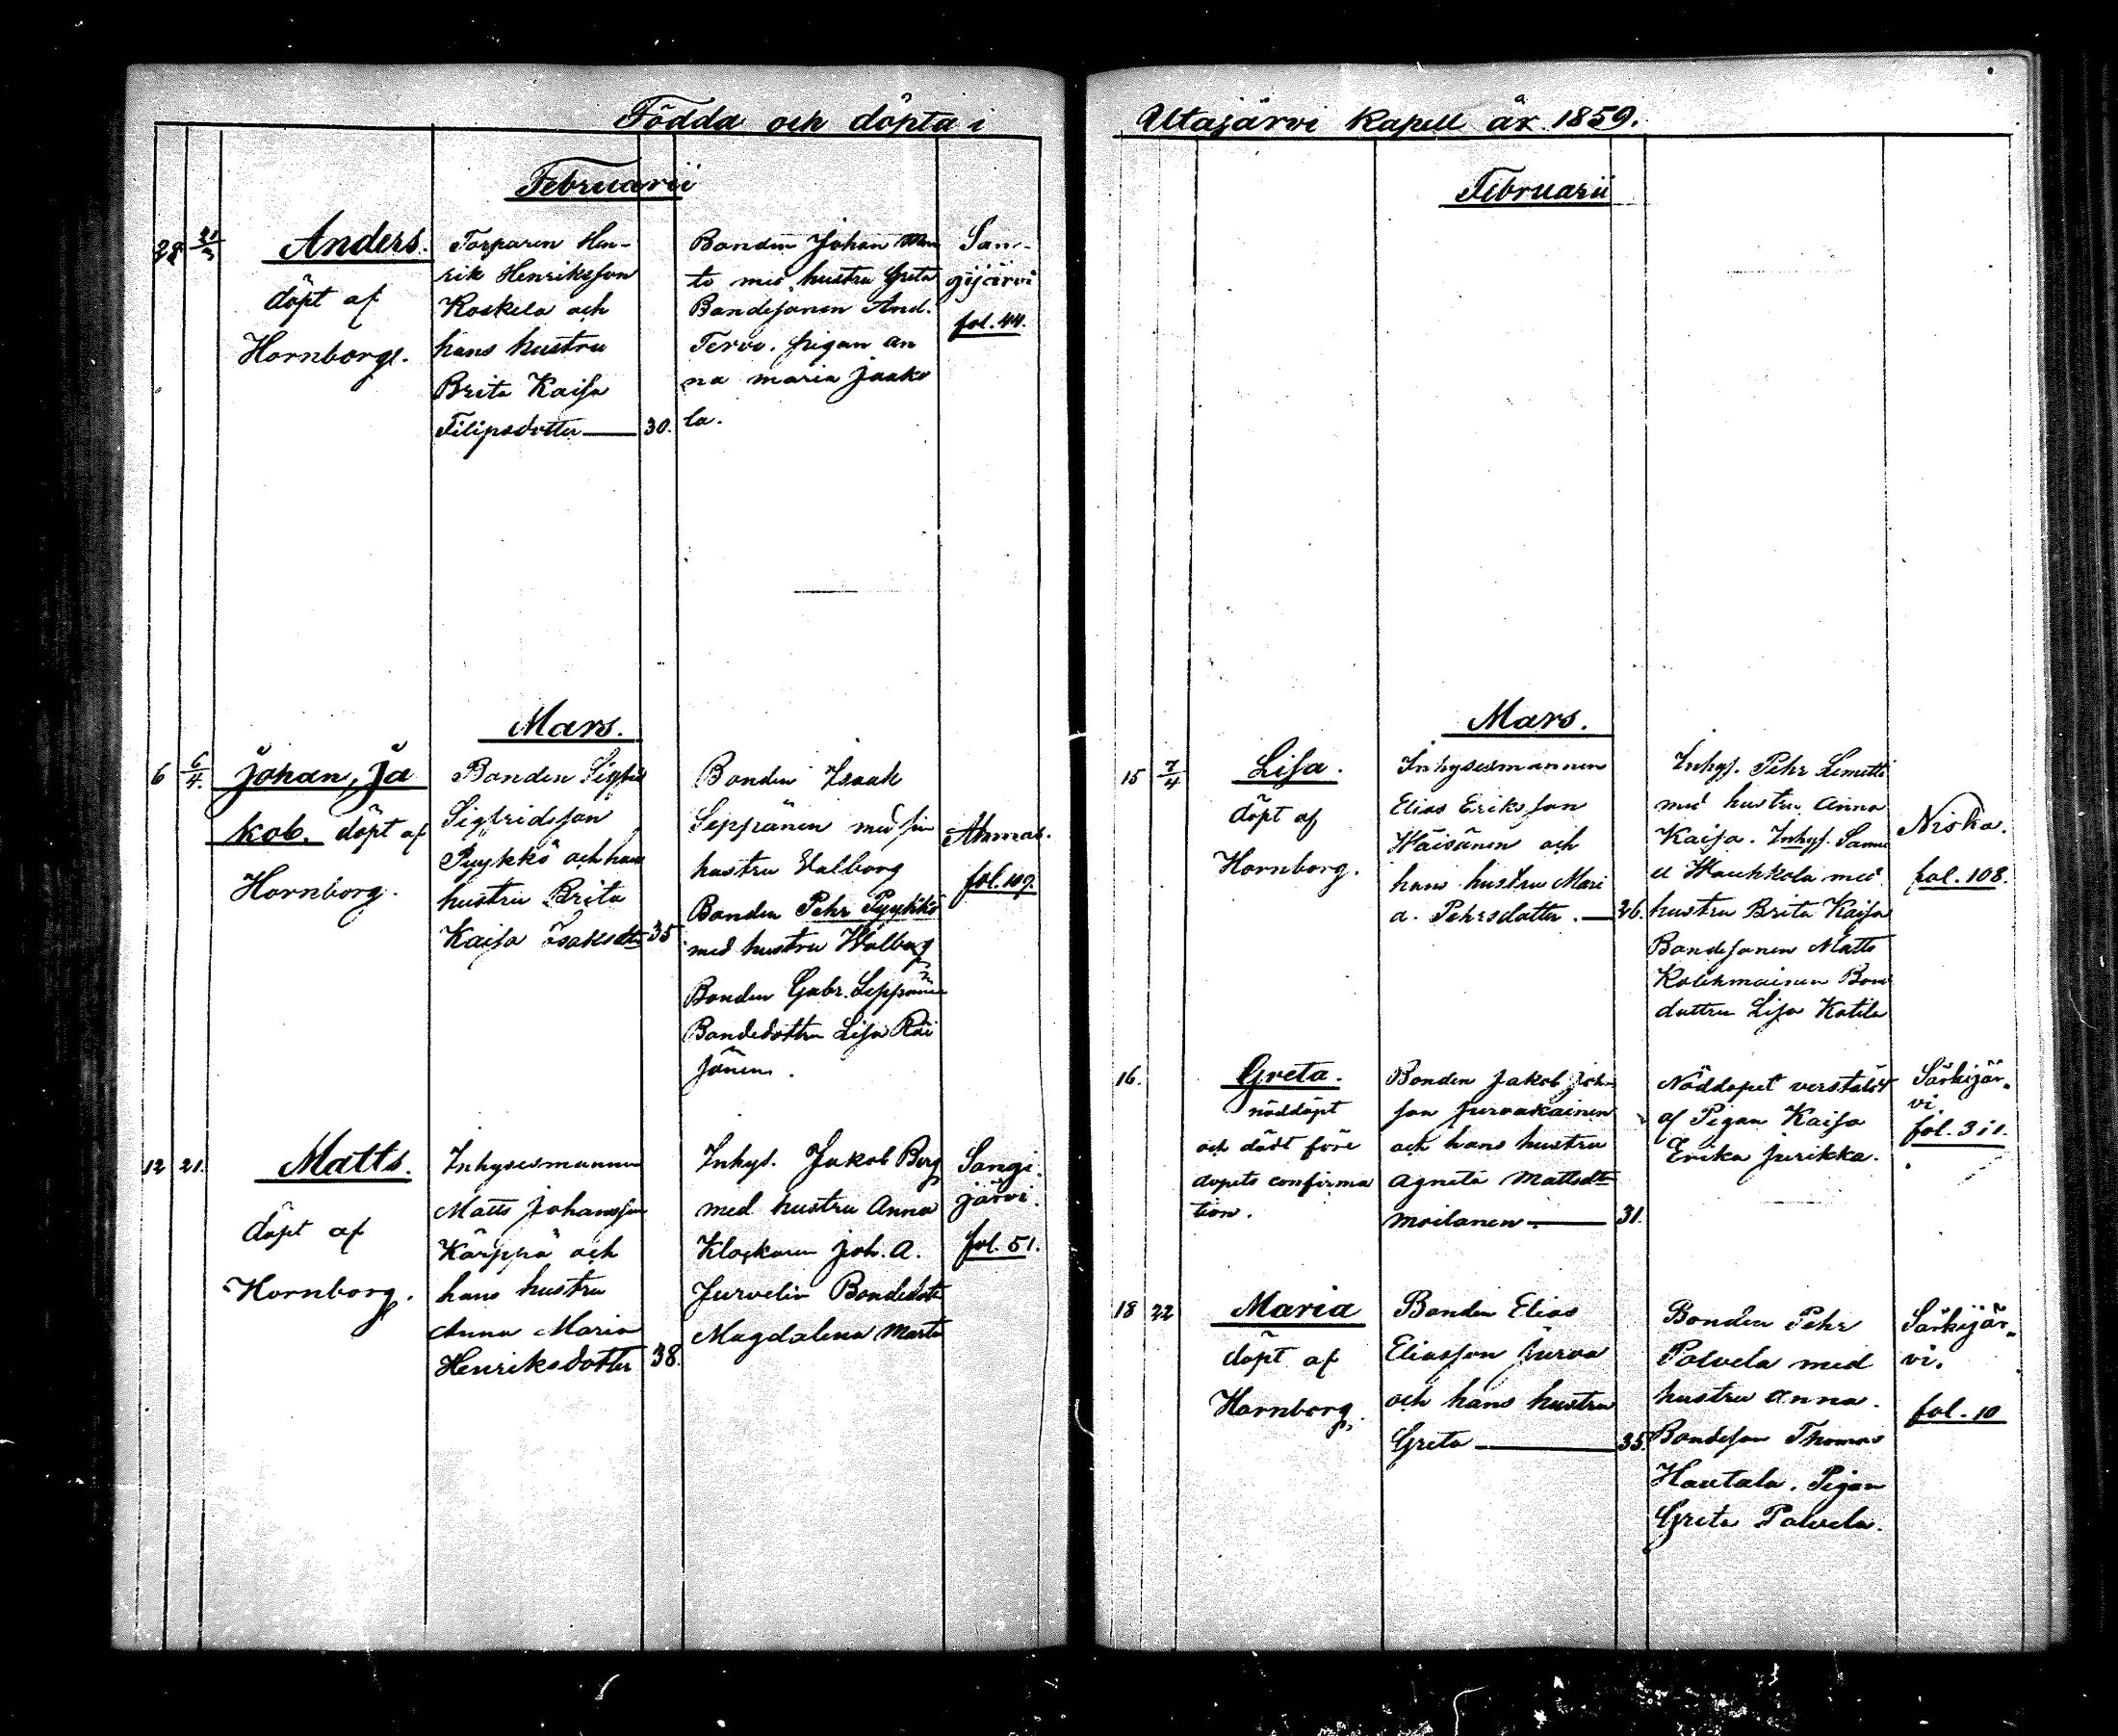 Födda och döpta i
Februarii
28 21/3 Anders. Torparen Hen-
rik Henriksson
Koskela och
hans hustru
Brita Kaisa
Filipsdotter — 30.
döpt af
Hornborg.
Bonden Johan
to med hustru Greta
Bondesonen And.
Tervo. pigan An
na Maria Jaako
la.
San-
gijärvi
fol. 44.
Mars.
6 6/4. Johan, Ja
kob. döpt af
Hornborg.
Bonden Sigfrid
Sigfridsson
Pyykkö och hans
hustru Brita
Kaisa Isaksdtr 35
Bonden Isaak
Seppänen med sin
hustru Valborg
Bonden Pehr Pyykkö
med hustru Walborg
Bonden Gabr. Seppänen
Bondedottren Lisa Räi
sänen.
Ahmas.
fol. 109.
12 21. Matts.
döpt af
Hornborg.
Inhysesmannen
Matts Johansson
Kärppä och
hans hustru
Anna Maria
Henriksdotter 38.
Inhys. Jakob Berg
med hustru Anna
Klockaren Joh. A.
Jurvelin Bondedotr
Magdalena Marta
Sangi-
järvi.
fol. 51.
Utajärvi Kapell år 1859.
Februarii
Mars.
15 7/4 Lisa.
döpt af
Hornborg.
Inhysesmannen
Elias Eriksson
Wäisänen och
hans hustru Mari
a. Pehrsdotter. — 26.
Inhys. Pehr Lemetti
med hustru Anna
Kaisa. Inhys. Samu
el Hauhkola med
hustru Brita Kaisa
Bondesonen Matts
Kolehmainen Bon
dottren Lisa Katila
Niska.
fol. 108.
16. Greta.
nöddöpt
och dödt före
dopets confirma
tion.
Bonden Jakob Joh-
son Jurvakainen
och hans hustru
Agneta Mattsdtr
Moilanen — 31.
Nöddopet verstäldt
af Pigan Kaisa
Erika Jurikka.
Särkijär-
vi.
fol. 311.
18 22 Maria
döpt af
Hornborg.
Bonden Elias
Eliasson Jurva
och hans hustru
Greta — 35.
Bonden Pehr
Polvela med
hustru Anna.
Bondeson Thomas
Hautala. Pigan
Greta Polvela.
Särkijär-
vi.
fol. 10